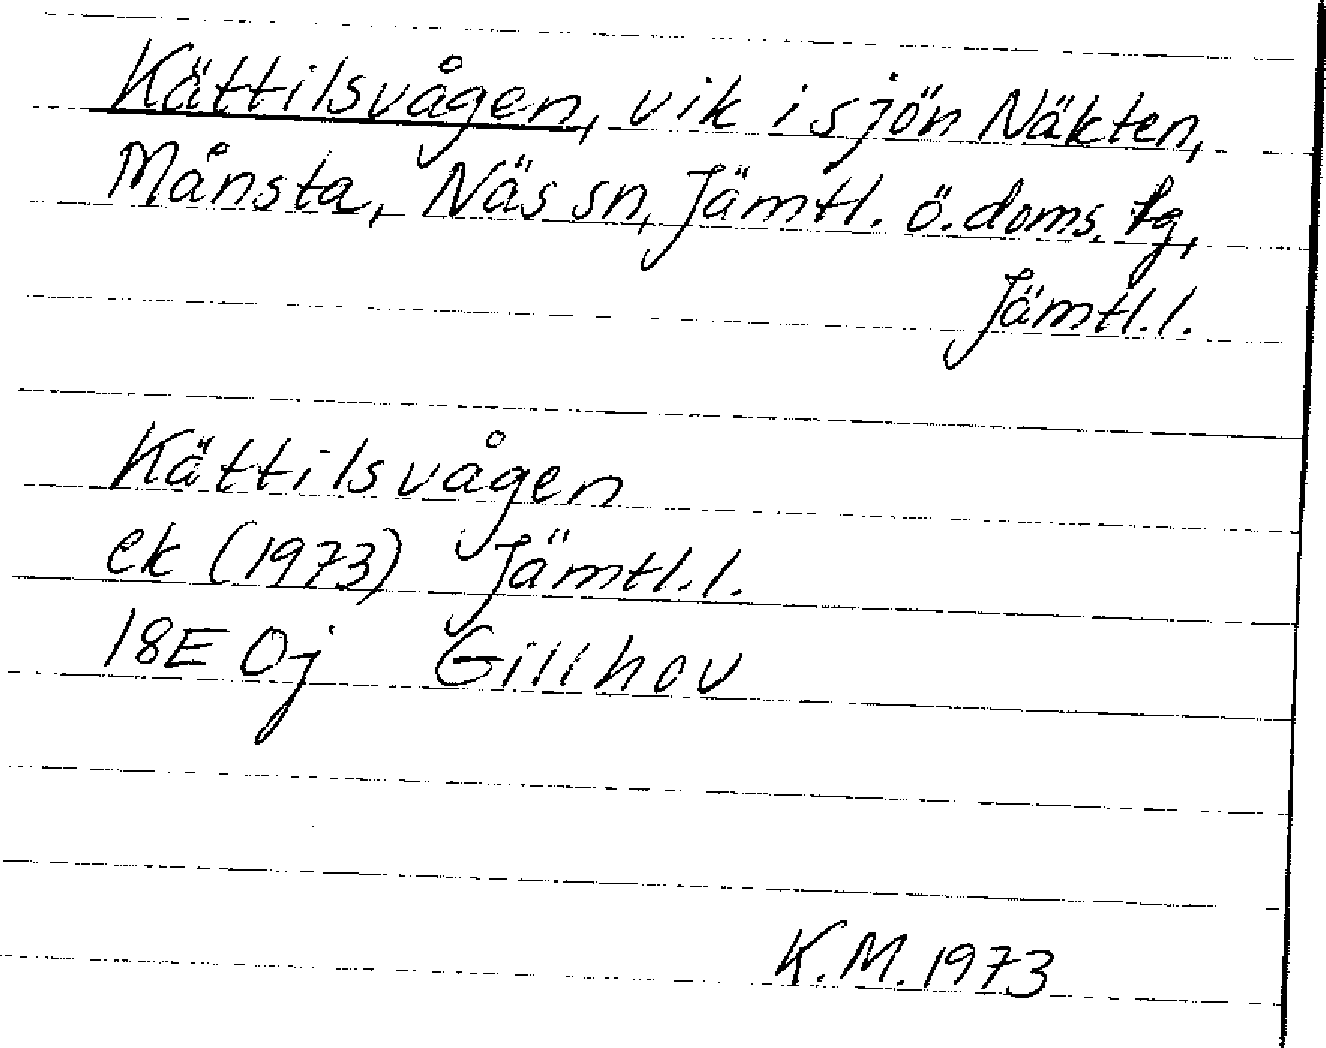 Kättilsvågen, vik i sjön Näkten,
Månsta, Näs sn, Jämtl. ö. doms. tg,
Jämtl. l.
Kättilsvågen
ek (1973) Jämtl. l.
18E 0j Gillhov
K. M. 1973